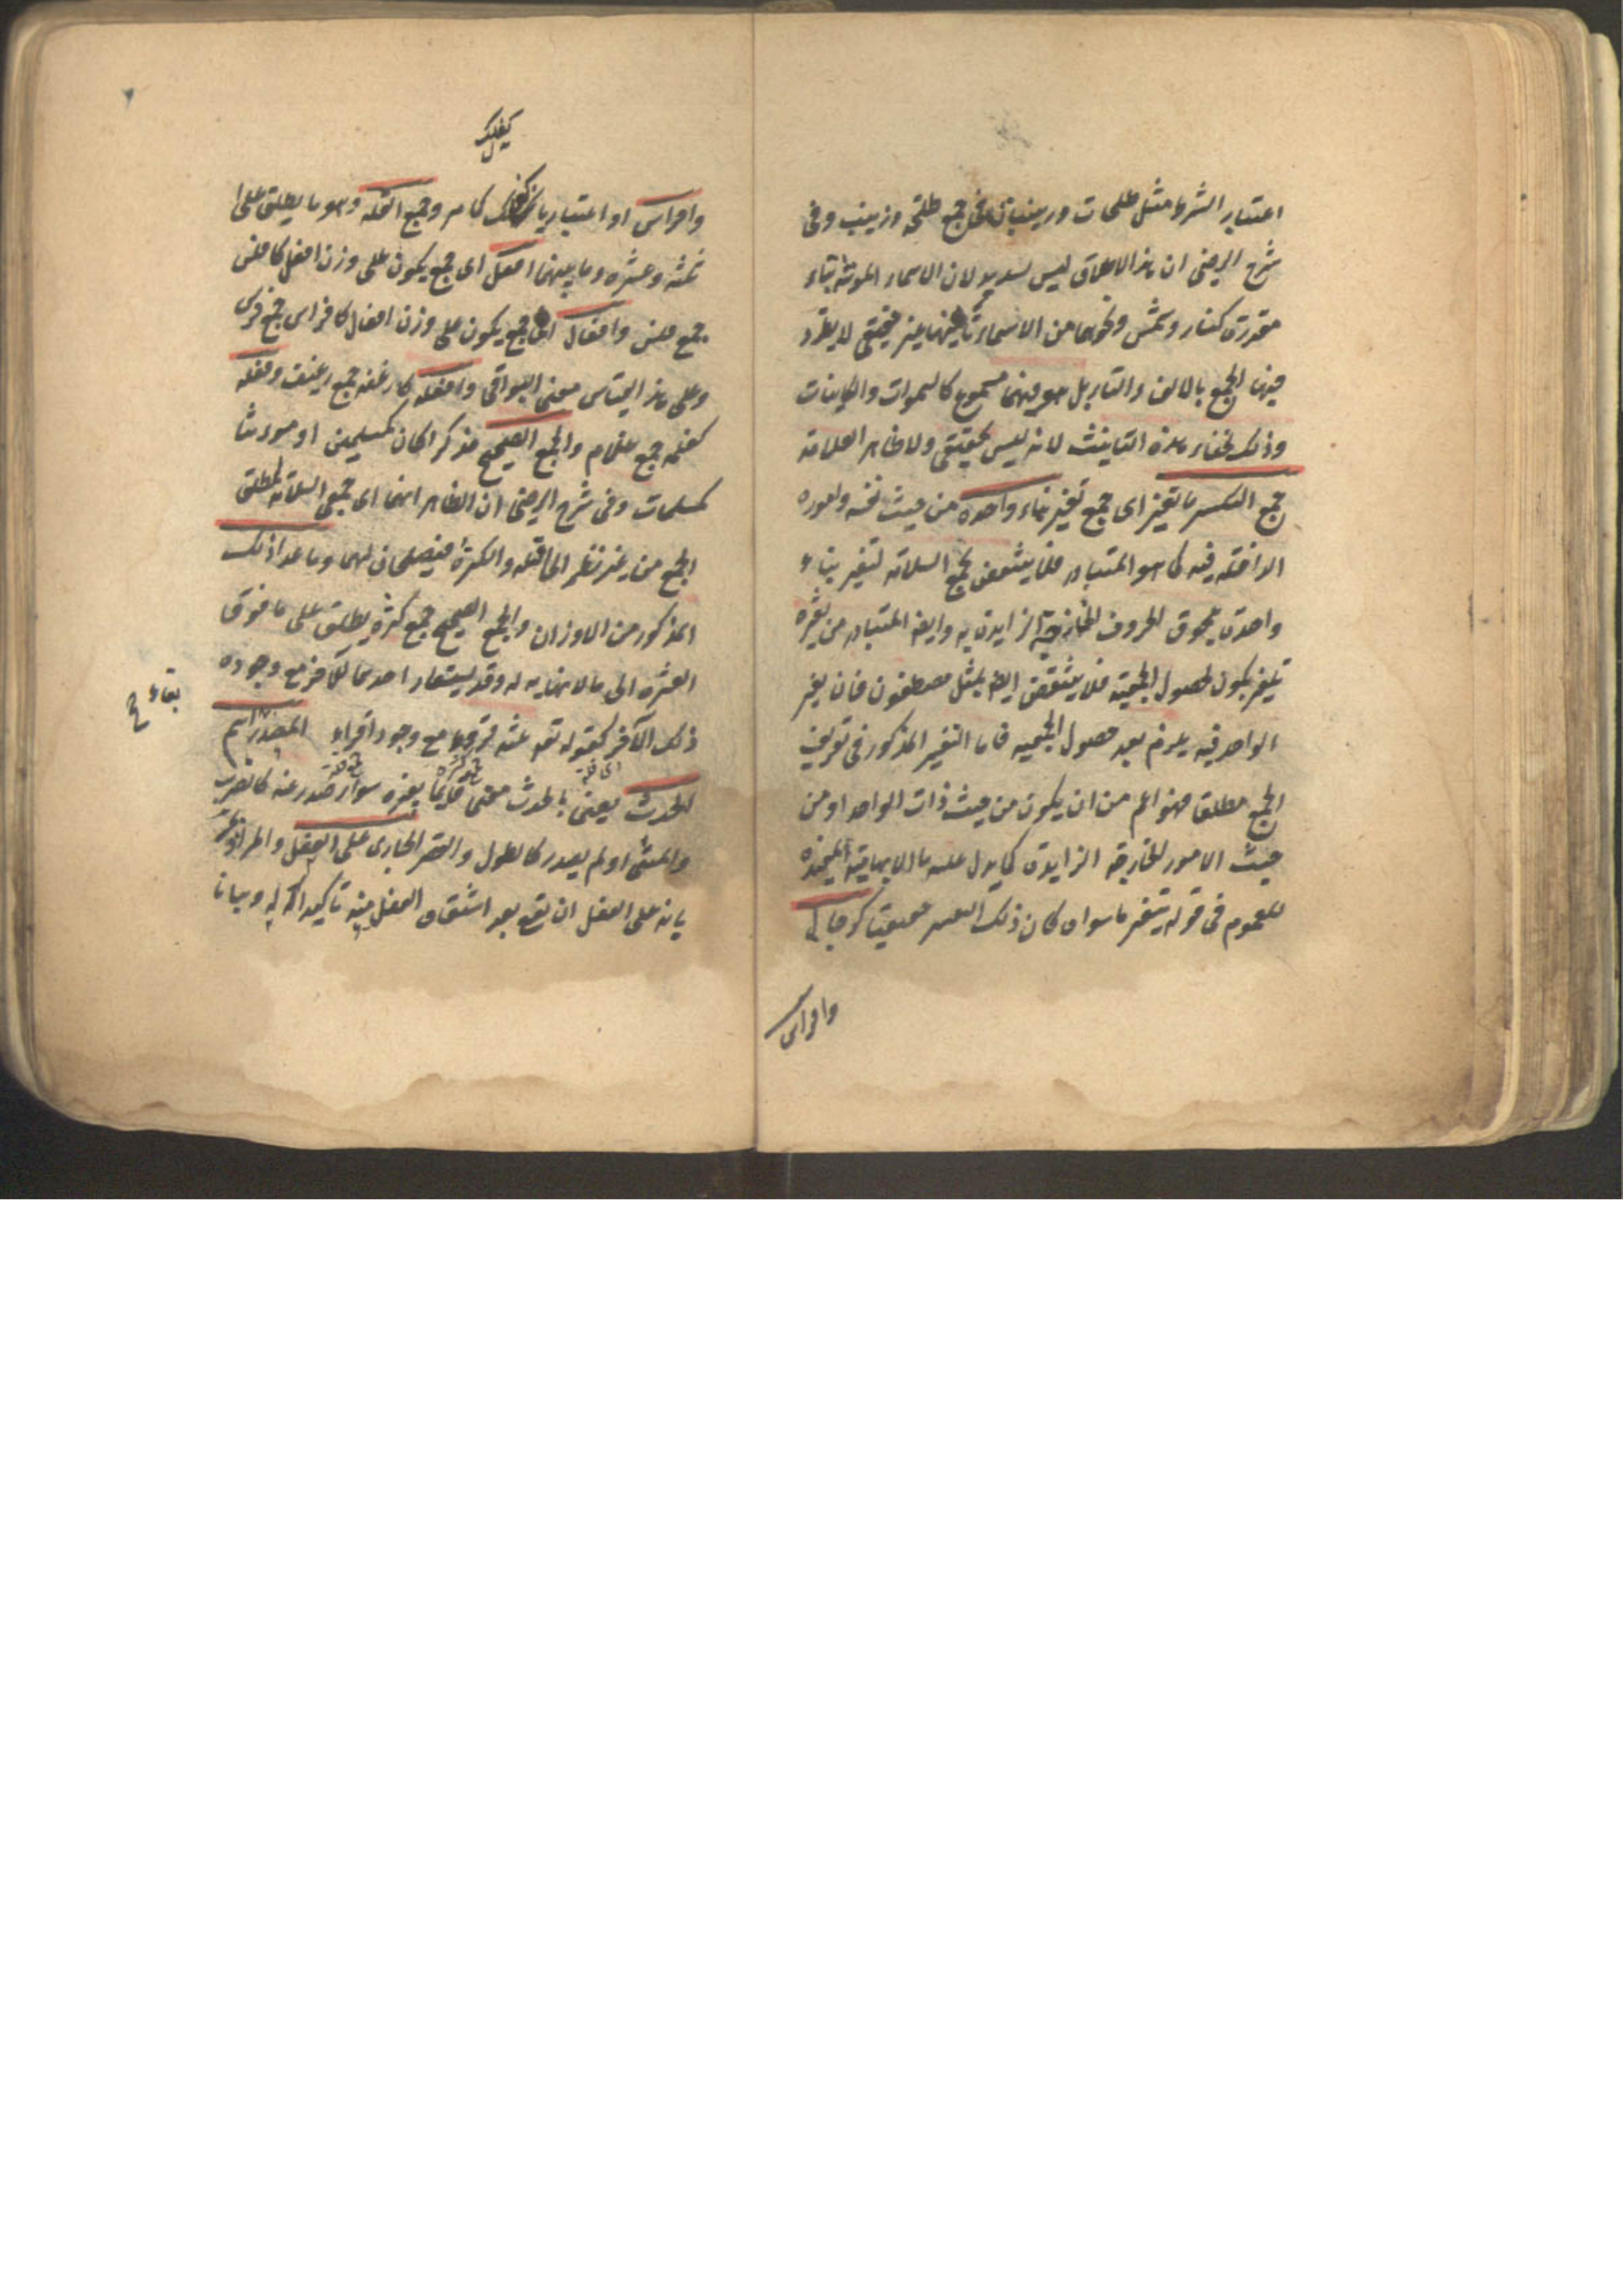 اعتبار الشرط مثل طلحات وزينبات فى جمع طلحة وزينب وفى
شرح الرضى ان هذا الاطلاق ليس بسديد لان الاسماء المونثة بتاء
مقدرة كنار وشمس ونحوهما من الاسماء تانيثها غير حقيقى لا يطرد
فيها الجمع بالالف والتاء بل هو فيها مسموع كالسموات والكاينات
وذلك لخفاء هذه التانيث لانه ليس بحقيقى ولا ظاهر العلامة
جمع التكسير ما تغير اى جمع تغير بناء واحده من حيث نفسه واموره
الداخلة فيه كما هو المتبادر فلا ينتقض بجمع السلامة لتغير بناء
واحده بلحوق الحروف الخارجية الزايدة به وايضا المتبادر من تغيره
تغير يكون لحصول الجمعية فلا ينتقض ايضا بمثل مصطفون فان تغير
الواحد فيه يلزم بعد حصول الجمعية فاما التغير المذكور فى تعريف
الجمع مطلقا فهو اعم من ان يكون من حيث ذات الواحد او من
حيث الامور الخارجة الزايدة كما يدل عليه ما الابهامية المفيدة
للعموم فى قوله بتغير ما سواء كان ذلك التغير حقيقيا كرجال
وافراس
كفلك
وافراس او اعتباريا كفلك كما مر وجمع القلة وهو ما يطلق على
ثلثة وعشرة وما بينهما افعل اى جمع يكون على وزن افعل كافلس
جمع فلس وافعال اى جمع يكون على وزن افعال كافراس جمع فرس
وعلى هذا القياس معنى البواقى وافعلة كارغفة جمع رغيف وفعلة
كغلمة جمع غلام والجمع الصحيح مذكرا كان كمسلمين او مونثا
كمسلمات وفى شرح الرضى ان الظاهر انهما اى جمعى السلامة لمطلق
الجمع من غير نظر الى القلة والكثرة فيصلحان لهما وما عدا ذلك
المذكور من الاوزان والجمع الصحيح جمع كثرة يطلق على ما فوق
العشرة الى ما لا نهاية له وقد يستعار احدهما للآخر مع وجوده
ذلك الآخر كقوله تع ثلثة قروء مع وجود اقراء المصدر اسم
الحدث يعنى بالحدث معنى قايما بغيره سواء صدر عنه كالضرب
والمشى او لم يصدر كالطول والقصر الجارى على الفعل والمراد
بجريانه على الفعل ان يقع بعد اشتقاق الفعل منه تاكيدا له او بيانا
بقاء